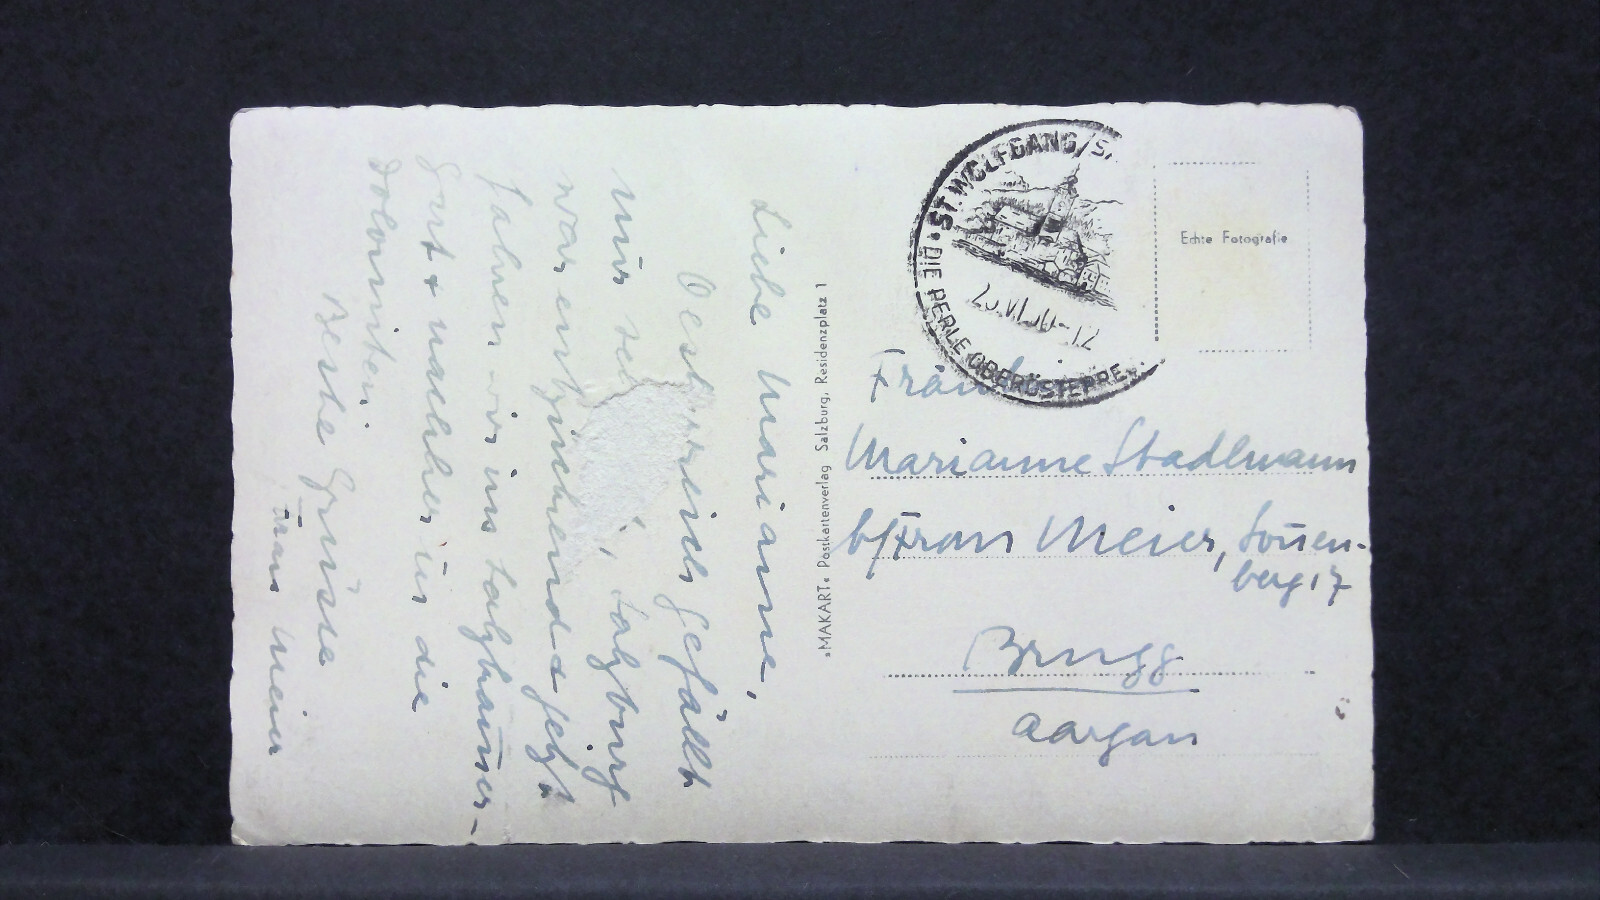 Liebe Marianne,
Oesterreich gefällt
mir se , Salzburg
war entzückend & jetzt
fahren wir ins Salzkammer-
gut & nachher in die
Dolomiten.
Beste Grüsse
Meier
"MAKART" Postkartenverlag Salzburg, Residenzplatz 1
ST. WOLFGANG/S
DIE PERLE OBERÖSTERR.
VI 50-12
Echte Fotografie
Fräulein
Marianne Stadlmann
b/Frau Meier, Sonnen-
berg 17
Brugg
Aargau